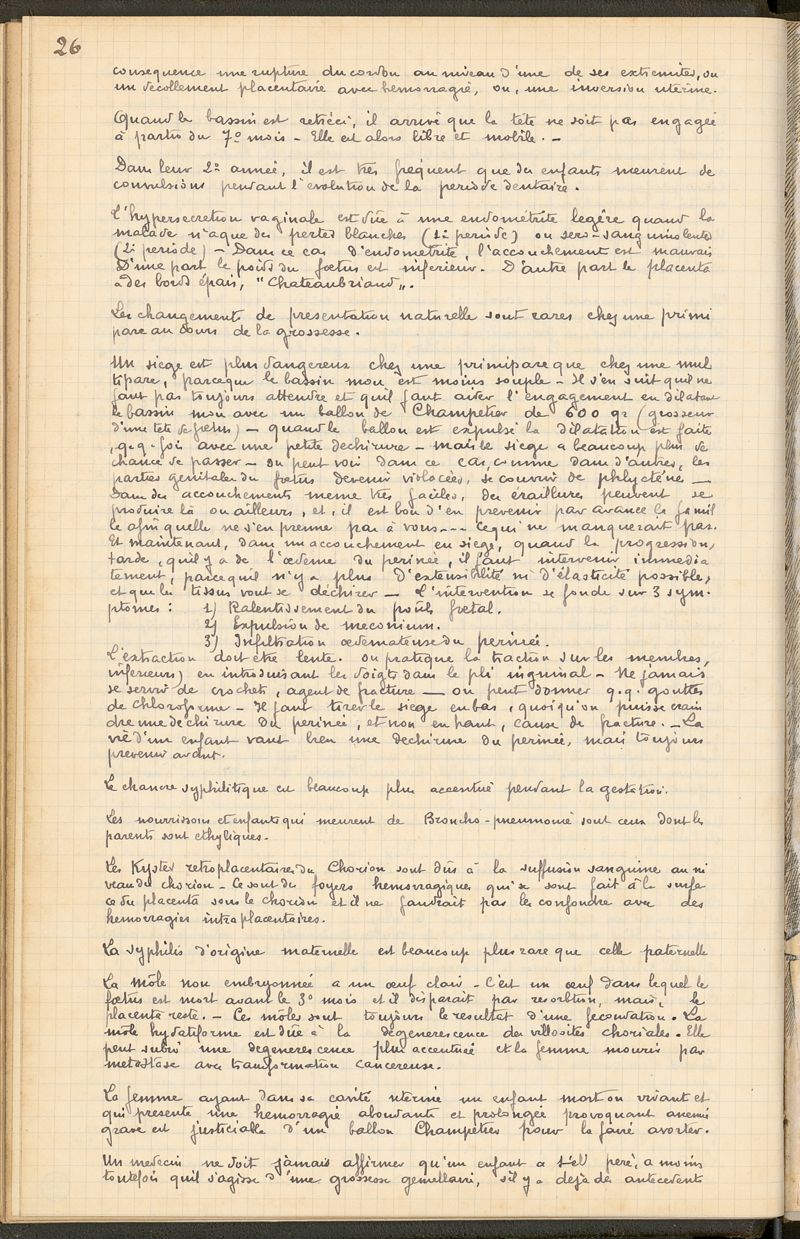 26
consequence une rupture du cordon au niveau d'une de ses extremités, ou
un decollement placentaire avec hemorragie, ou, une inversion uterine.
Quand le bassin est retréci, il arrive que la tete ne soit pas engagée
à partir du 7º mois - Elle est alors libre et mobile. -
Dans leur 2º année, il est très frequent que des enfants meurent de
convulsions pendant l'evolution de la periode dentaire.
L'hypersecretion vaginale est dûe à une endometrite legère quand la
malade n'a que des pertes blanches (1º periode) ou sero-sanguinolentes
(2º periode) - Dans ce cas d'endometrite, l'accouchement est mauvais
D'une part le poids du foetus est inferieur. D'autre part le placenta
a des bords épais, "Chateaubriand".
Les changements de presentation naturelle sont rares chez une primi
pare au cours de la grossesse.
Un siege est plus dangereux chez une primipare que chez une mul
tipare, parceque le bassin mou est moins souple - Il s'en suit qu'il ne
faut pas toujours attendre et qu'il faut aider l'engagement en dilatant
le bassin mou avec un ballon de Champetier de 600 gr (grosseur
d'une tete de foetus) - quand le ballon est expulsé la dilatation est faite
, q.q. fois avec une petite dechirure - mais le siege a beaucoup plus de
chance de passer - On peut voir dans ce cas, comme dans d'autres, les
parties genitales du foetus devenir violacées, se couvrir de phlyctène -
Dans des accouchements meme très faciles, des éraillures peuvent se
produire là ou ailleurs, et, il est bon d'en prevenir par avance la famil
le afin qu'elle ne s'en prenne pas à vous --- ce qui ne manquerait pas.
Et maintenant, dans un accouchement en siege, quand la progression,
tarde, qu'il y a de l'oedeme du perinée, il faut intervenir immedia
tement, parcequ'il n'y a plus d'extensibilité ni d'élasticité possible,
et que les tissus vont se déchirer - L'intervention se fonde sur 3 sym-
ptomes: 1) Ralentissement du pouls foetal.
2) Expulsion de meconium.
3) Infiltration oedemateuse du perinée.
L'extraction doit être lente. On pratique la traction sur les membres,
inferieurs) en introduisant les doigts dans le pli inguinal - Ne jamais
se servir de crochets, agent de fracture - on peut donner q.q. gouttes
de chloroforme - Il faut tirer le siege en bas, quoiqu'on puisse crain
dre une dechirure du perinée, et non en haut, cause de fracture. - La
vie d'un enfant vaut bien une dechirure du perinée, mais toujours
prevenir avant.
Le chancre syphilitique est beaucoup plus accentué pendant la gestation.
Les nourrissons et enfants qui meurent de Broncho-pneumonie sont ceux dont les
parents sont ethyliques.
Les Kystes retroplacentaires du Chorion sont dûs à la suffusion sanguine au ni
veau du chorion - Ce sont des foyers hemorragiques qui se sont fait à la surfa
ce du placenta sous le chorion et il ne faudrait pas les confondre avec des
hemorragies intraplacentaires.
La syphilis d'origine maternelle est beaucoup plus rare que celle paternelle
La môle non embryonnée a un oeuf clair - C'est un oeuf dans lequel le
foetus est mort avant le 3º mois et il disparait par resorbtion, mais, le
placenta reste. - Ces moles sont toujours le resultat d'une fecondation. La
mole hydatiforme est dûe à la degenerescence des villosités choriales. Elle
peut subir une degenerescence plus accentuée et la femme mourir par
metastase avec transformation cancereuse.
La femme ayant dans sa cavité uterine un enfant mort ou vivant et
qui presente une hemorragie abondante et prolongée provoquant anemie
grave est justiciable d'un ballon Champetier pour la faire avorter.
Un medecin ne doit jamais affirmer qu'un enfant a tel père, a moins
toutefois qu'il s'agisse d'une grossesse gemellaire, s'il y a dejà des antecedents